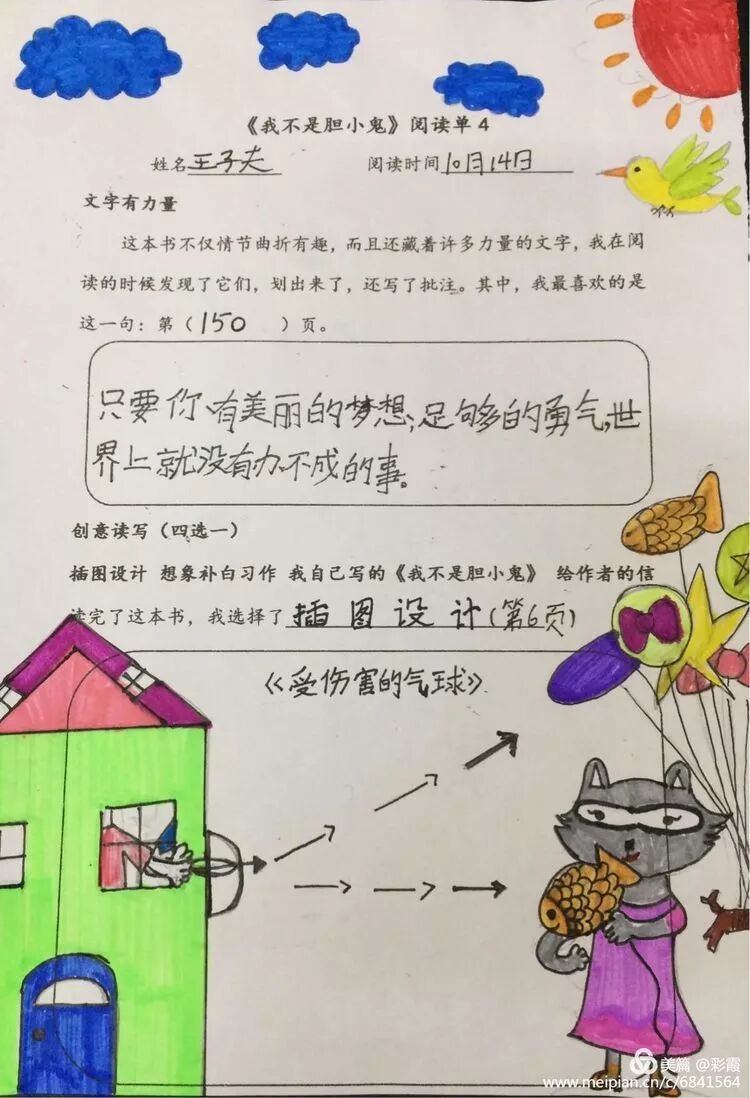 《我不是胆小鬼》阅读单4
姓名王子夫 阅读时间10月14日
文字有力量
这本书不仅情节曲折有趣，而且还藏着许多力量的文字，我在阅
读的时候发现了它们，划出来了，还写了批注。其中，我最喜欢的是
这一句：第（150）页。
只要你有美丽的梦想，足够多的勇气，世
界上就没有办不成的事。
创意读写（四选一）
插图设计 想象补白习作 我自己写的《我不是胆小鬼》 给作者的信
读完了这本书，我选择了插图设计（第6页）
《受伤害的气球》
美篇 @彩霞
www.meipian.cn/c/6841564